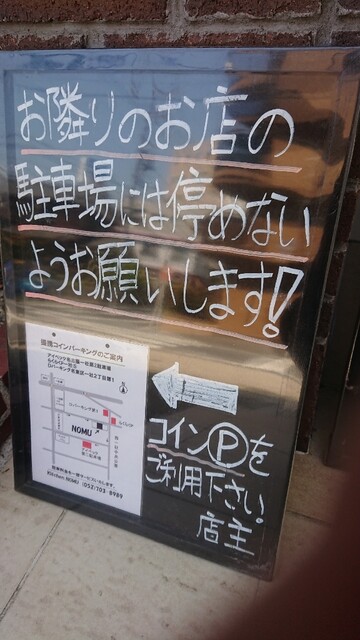 お隣りのお店の
駐車場には停めない
ようお願いします!
提携コインパーキングのご案内
NOMU
コインⓅを
ご利用下さい。
店主
Kitchen NOMU (052)703-8989